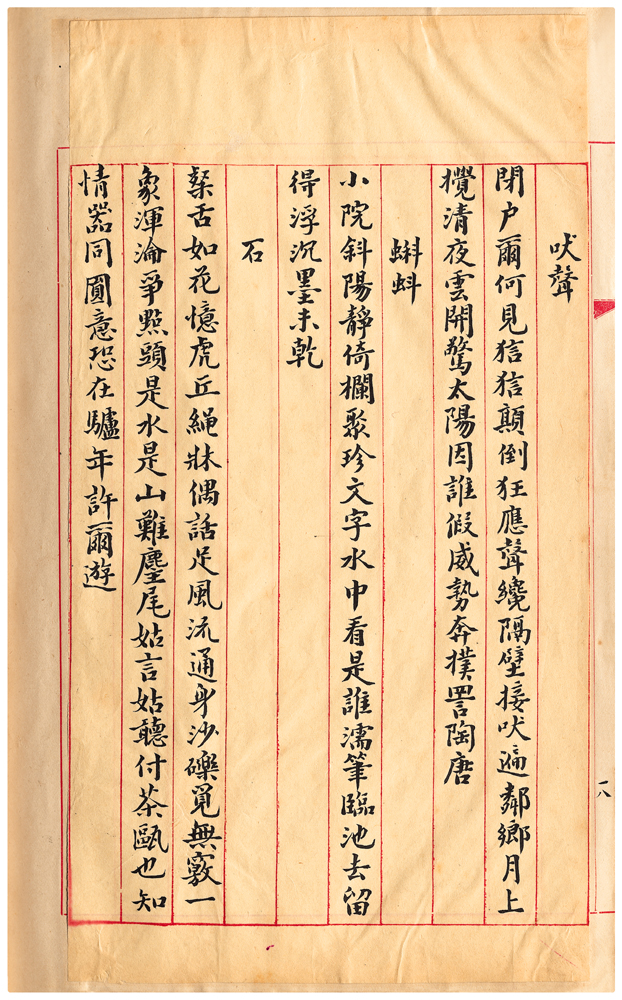 吠聲
閉户爾何見狺狺顛倒狂應聲纔隔壁接吠遍鄰鄉月上
攪清夜雲開驚太陽因誰假威勢奔撲詈陶唐
蝌蚪
小院斜陽靜倚欄聚珍文字水中看是誰濡筆臨池去留
得浮沉墨未乾
石
粲舌如花憶虎丘繩牀偶話足風流通身沙礫覓無竅一
象渾淪爭點頭是水是山難麈尾姑言姑聽付茶甌也知
情器同圓意恐在驢年許爾遊
八